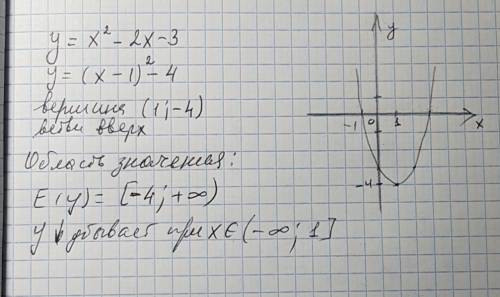 y = x² - 2x - 3
y = (x - 1)² - 4
вершина (1; -4)
ветви вверх
Область значения:
E(y) = [-4; +∞)
y убывает при x ∈ (-∞; 1]
y
-1 0 1 x
-4